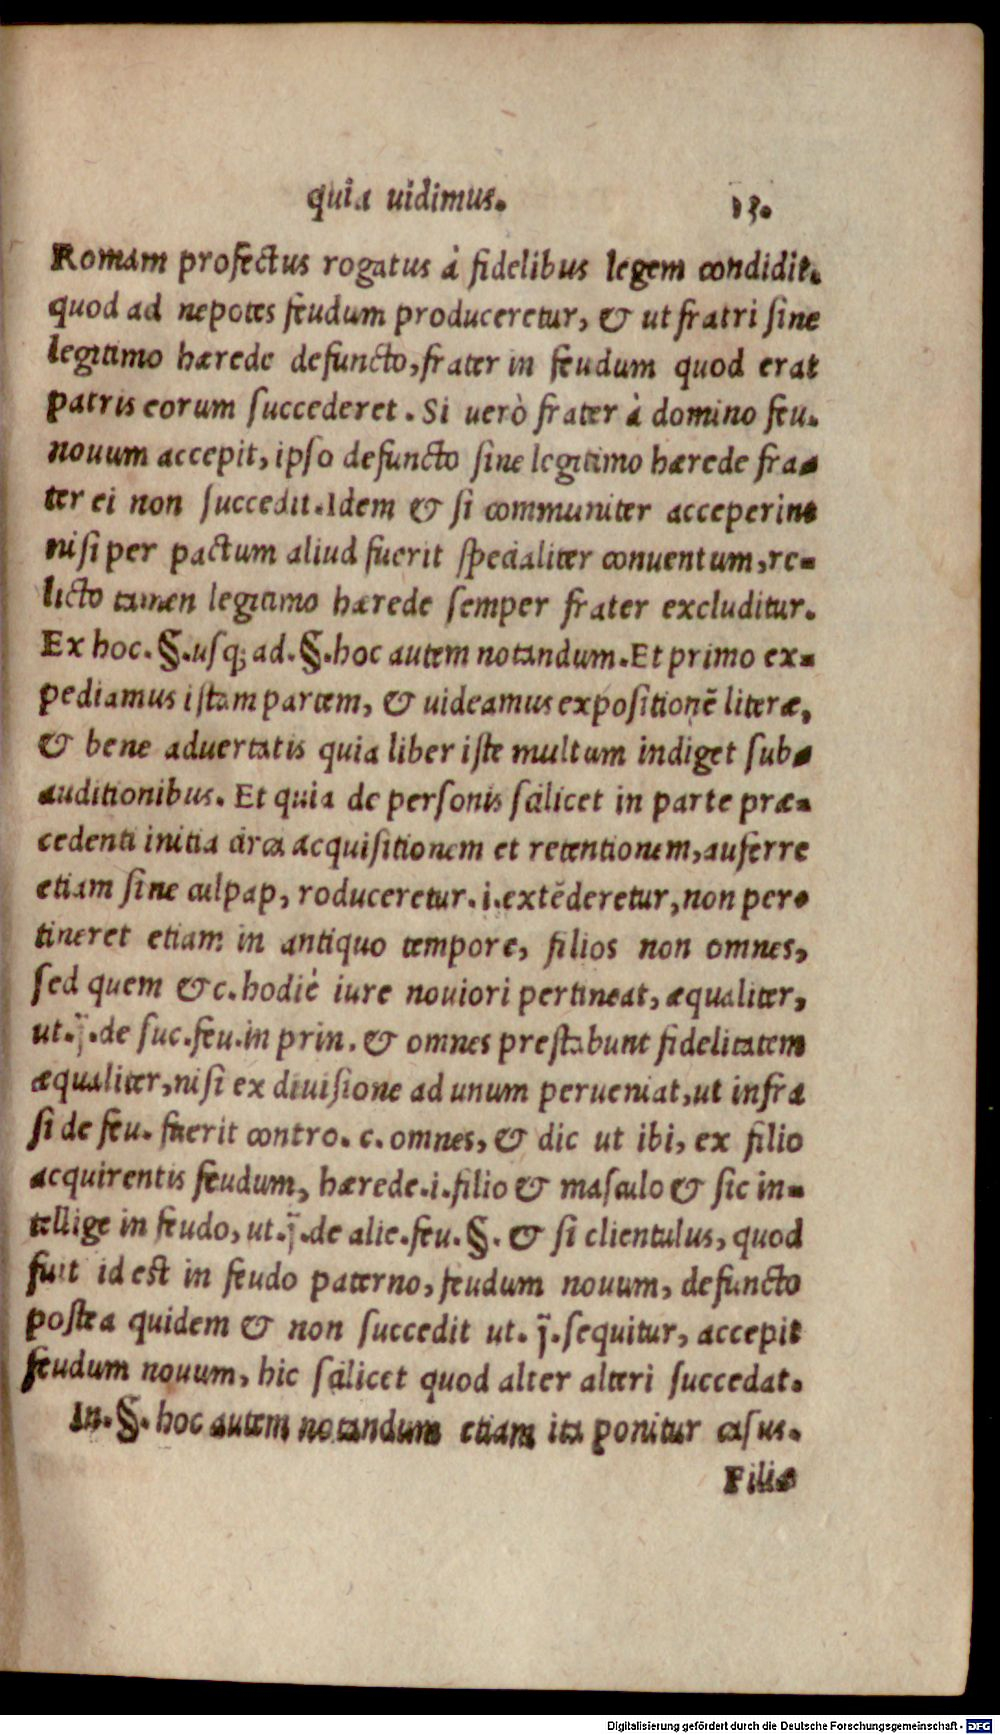 quia uidimus. 13.
Romam profectus rogatus à fidelibus legem condidit.
quod ad nepotes feudum produceretur, & ut fratri sine
legitimo hærede defuncto, frater in feudum quod erat
patris eorum succederet. Si uerò frater à domino feu.
nouum accepit, ipso defuncto sine legitimo hærede fra-
ter ei non succedit. Idem & si communiter acceperint
nisi per pactum aliud fuerit specialiter conuentum, re-
licto tamen legitimo hærede semper frater excluditur.
Ex hoc. §. usq; ad. §. hoc autem notandum. Et primo ex-
pediamus istam partem, & uideamus expositionẽ literæ,
& bene aduertatis quia liber iste multum indiget sub-
auditionibus. Et quia de personis scilicet in parte præ-
cedenti initia circa acquisitionem et retentionem, auferre
etiam sine culpap, roduceretur. i. extẽderetur, non per-
tineret etiam in antiquo tempore, filios non omnes,
sed quem &c. hodiè iure nouiori pertineat, æqualiter,
ut. j̃. de suc. feu. in prin. & omnes prestabunt fidelitatem
æqualiter, nisi ex diuisione ad unum perueniat, ut infra
si de feu. fuerit contro. c. omnes, & dic ut ibi, ex filio
acquirentis feudum, hærede. i. filio & masculo & sic in-
tellige in feudo, ut. j̃. de alie. feu. §. & si clientulus, quod
fuit id est in feudo paterno, feudum nouum, defuncto
postea quidem & non succedit ut. j̃. sequitur, accepit
feudum nouum, hic scilicet quod alter alteri succedat.
In. §. hoc autem notandum etiam ita ponitur casus.
Filiæ
Digitalisierung gefördert durch die Deutsche Forschungsgemeinschaft - DFG